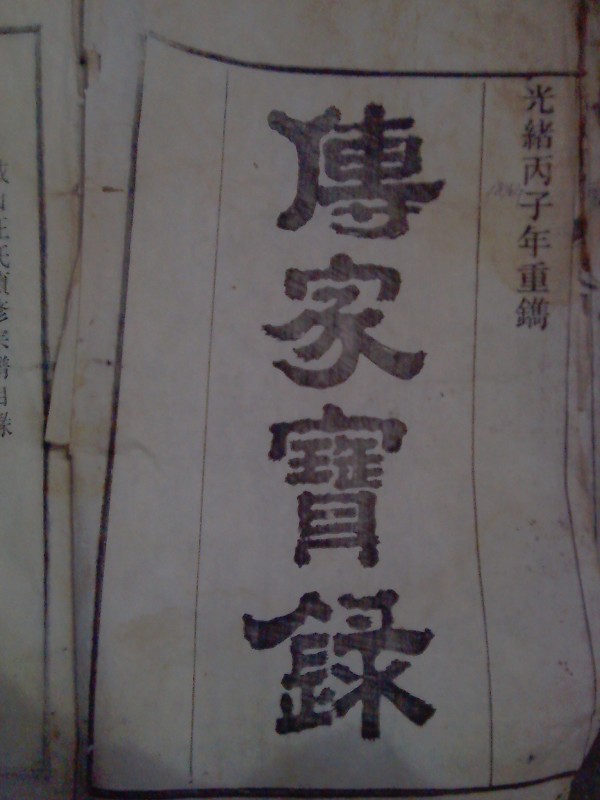 光緒丙子年重鐫
傳家寶錄
山汪氏續修宗譜目錄